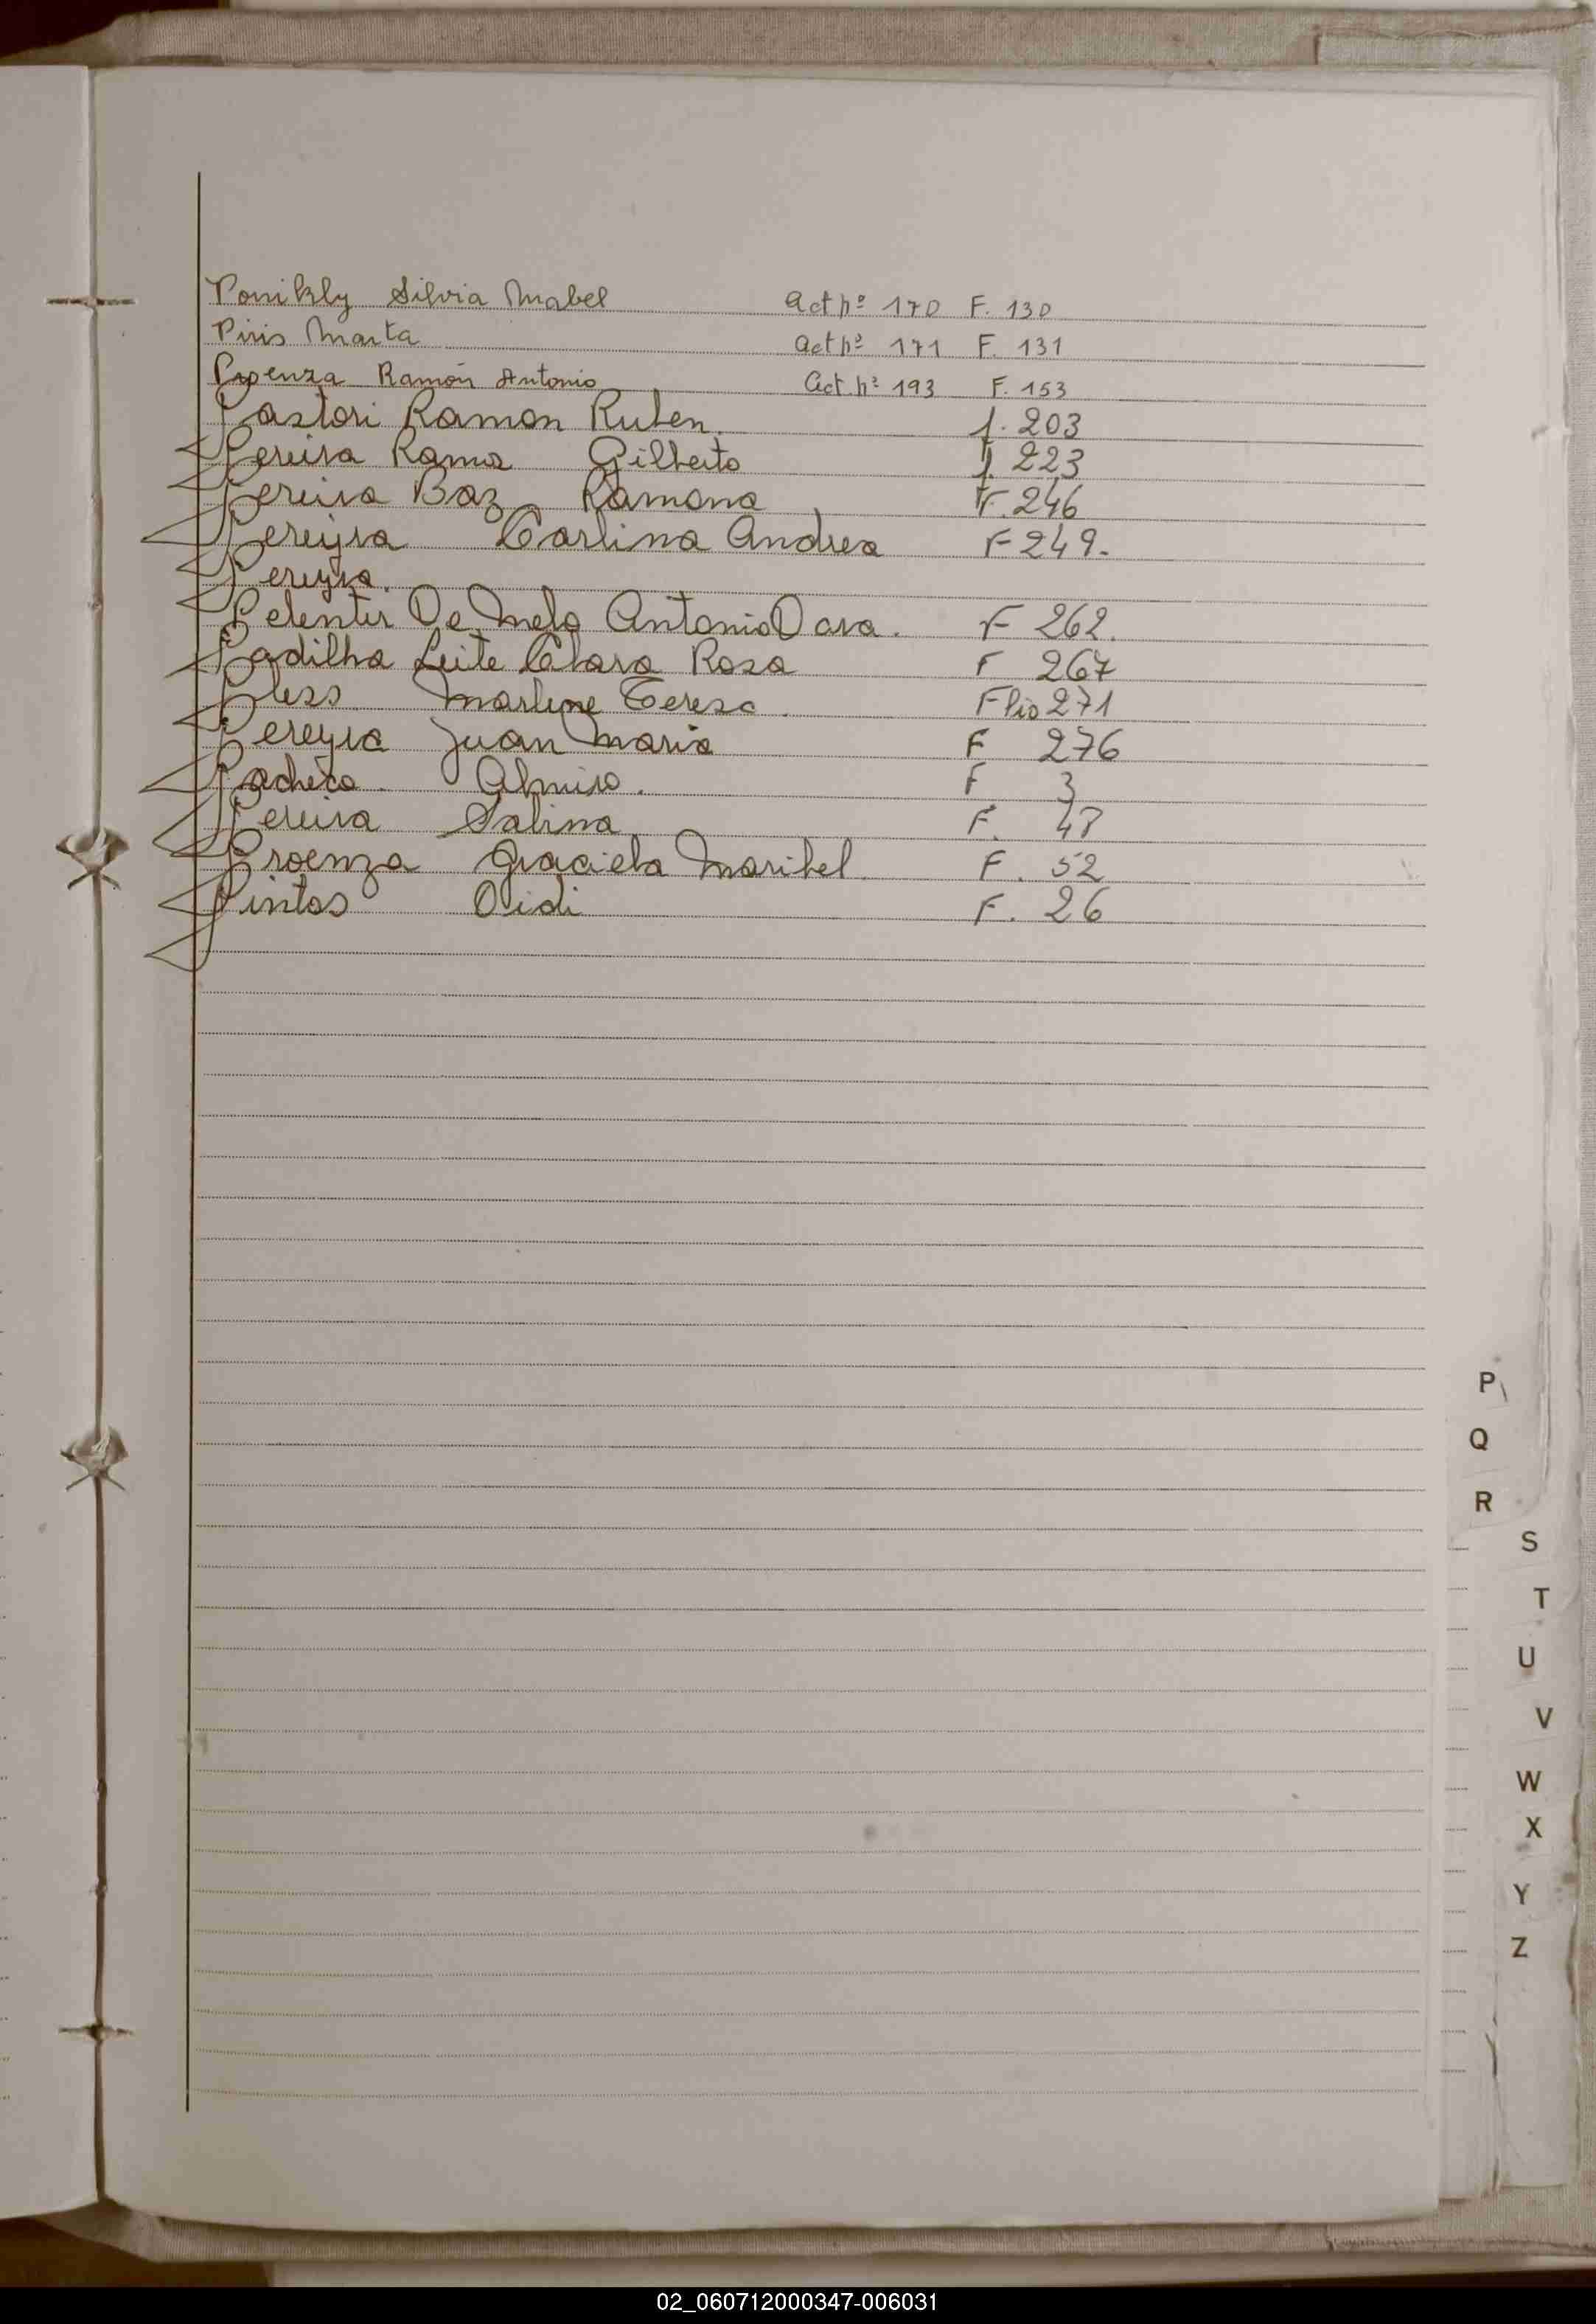 Ponikly Silvia Mabel Act nº 170 F. 130
Piris Marta Act nº 171 F. 131
Proenza Ramón Antonio Act. nº 193 F. 153
Pastori Ramon Ruben. f. 203
Pereira Ramos Gilberto f. 223
Pereira Baz Ramona F. 246
Pereyra Carlina Andrea F 249.
Pereyra.
De Melo Antonio F 262.
Padilha Leite Clara Rosa F 267
Pless Marlene Teresa. Flio 271
Pereyra Juan Maria F 276
Pacheco. Almiro. F 3
Pereira Sabina F. 48
Proenza Graciela Maribel. F. 52
Pintos Oidi F. 26
P
Q
R
S
T
U
V
W
X
Y
Z
02_060712000347-006031